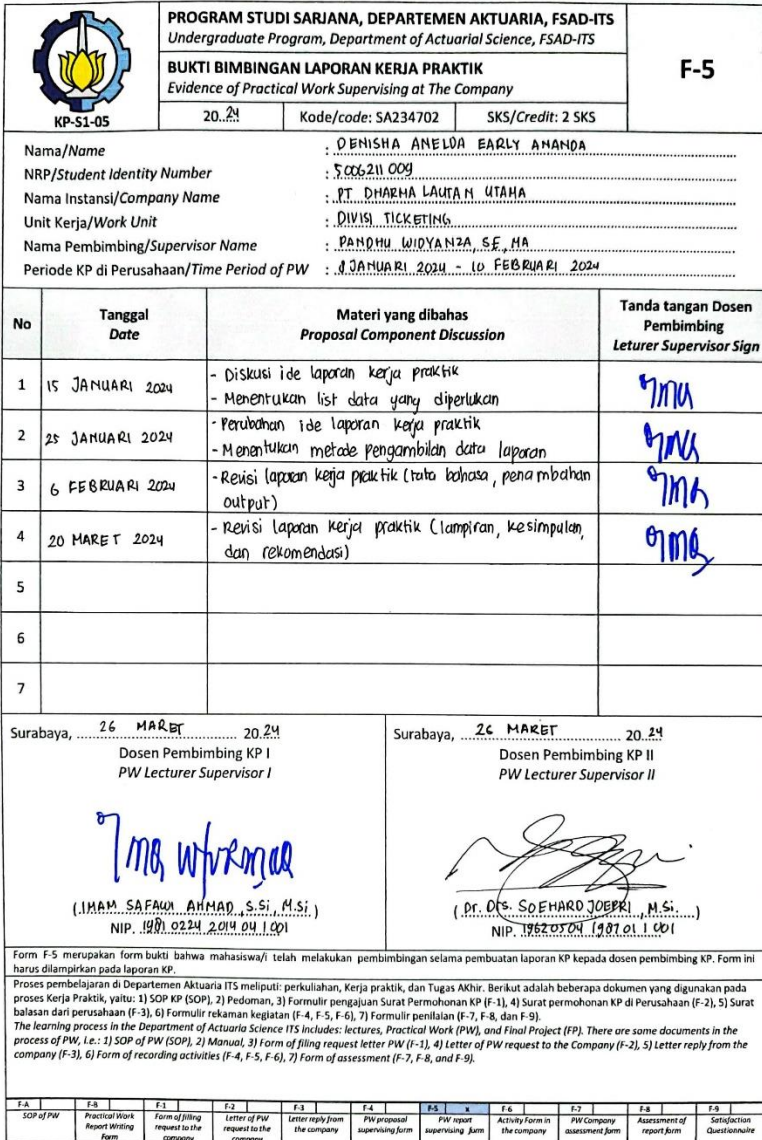 PROGRAM STUDI SARJANA, DEPARTEMEN AKTUARIA, FSAD-ITS
Undergraduate Program, Department of Actuarial Science, FSAD-ITS
BUKTI BIMBINGAN LAPORAN KERJA PRAKTIK
Evidence of Practical Work Supervising at The Company
F-5
KP-S1-05
20..24
Kode/code: SA234702
SKS/Credit: 2 SKS
Nama/Name : DENISHA ANELDA EARLY ANANDA
NRP/Student Identity Number : 5006211 009
Nama Instansi/Company Name : PT DHARMA LAUTAN UTAMA
Unit Kerja/Work Unit : DIVISI TICKETING
Nama Pembimbing/Supervisor Name : PANDHU WIDYANZA, SE, MA
Periode KP di Perusahaan/Time Period of PW : 8 JANUARI 2024 - 10 FEBRUARI 2024
No
Tanggal
Date
Materi yang dibahas
Proposal Component Discussion
Tanda tangan Dosen
Pembimbing
Leturer Supervisor Sign
1 15 JANUARI 2024 - Diskusi ide laporan kerja praktik
- Menentukan list data yang diperlukan
2 25 JANUARI 2024 - Perubahan ide laporan kerja praktik
- Menentukan metode pengambilan data laporan
3 6 FEBRUARI 2024 - Revisi laporan kerja praktik (tata bahasa, penambahan
output)
4 20 MARET 2024 - Revisi laporan kerja praktik (lampiran, kesimpulan,
dan rekomendasi)
5
6
7
Surabaya, 26 MARET 20.24
Dosen Pembimbing KP I
PW Lecturer Supervisor I
(IMAM SAFAWI AHMAD, S.Si, M.Si)
NIP. 1981 0224 2014 04 1 001
Surabaya, 26 MARET 20.24
Dosen Pembimbing KP II
PW Lecturer Supervisor II
(Dr. Drs. SOEHARDJOEPRI, M.Si.)
NIP. 19620504 198701 1 001
Form F-5 merupakan form bukti bahwa mahasiswa/i telah melakukan pembimbingan selama pembuatan laporan KP kepada dosen pembimbing KP. Form ini
harus dilampirkan pada laporan KP.
Proses pembelajaran di Departemen Aktuaria ITS meliputi: perkuliahan, Kerja praktik, dan Tugas AKhir. Berikut adalah beberapa dokumen yang digunakan pada
proses Kerja Praktik, yaitu: 1) SOP KP (SOP), 2) Pedoman, 3) Formulir pengajuan Surat Permohonan KP (F-1), 4) Surat permohonan KP di Perusahaan (F-2), 5) Surat
balasan dari perusahaan (F-3), 6) Formulir rekaman kegiatan (F-4, F-5, F-6), 7) Formulir penilaian (F-7, F-8, dan F-9).
The learning process in the Department of Actuaria Science ITS includes: lectures, Practical Work (PW), and Final Project (FP). There are some documents in the
process of PW, i.e.: 1) SOP of PW (SOP), 2) Manual, 3) Form of filing request letter PW (F-1), 4) Letter of PW request to the Company (F-2), 5) Letter reply from the
company (F-3), 6) Form of recording activities (F-4, F-5, F-6), 7) Form of assessment (F-7, F-8, and F-9).
F-A F-B F-1 F-2 F-3 F-4 F-5 x F-6 F-7 F-8 F-9
SOP of PW
Practical Work
Report Writing
Form
Form of filling
request to the
company
Letter of PW
request to the
company
Letter reply from
the company
PW proposal
supervising form
PW report
supervising form
Activity Form in
the company
PW Company
assessment form
Assessment of
report form
Satisfaction
Questionnaire